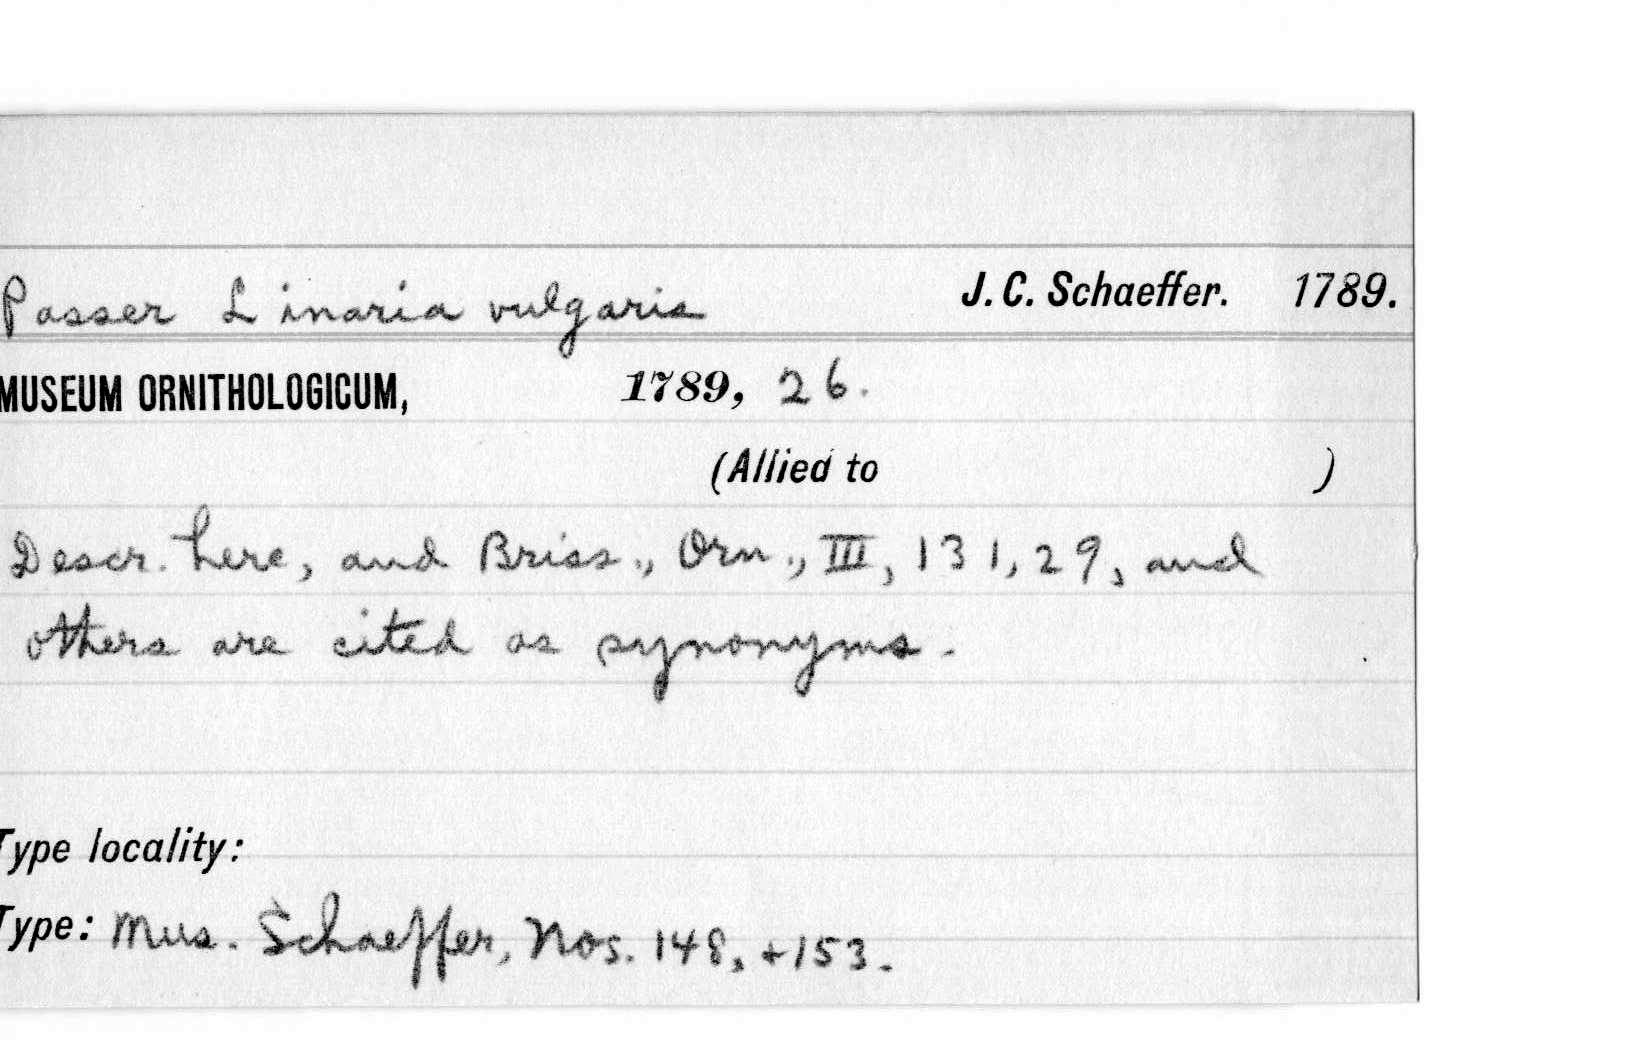 Passer Linaria vulgaris J. C. Schaeffer. 1789.
MUSEUM ORNITHOLOGICUM, 1789, 26.
(Allied to )
Descr. here, and Briss., Orn., III, 131, 29, and
others are cited as synonyms.
Type locality:
Type: Mus. Schaeffer, Nos. 148, +153.